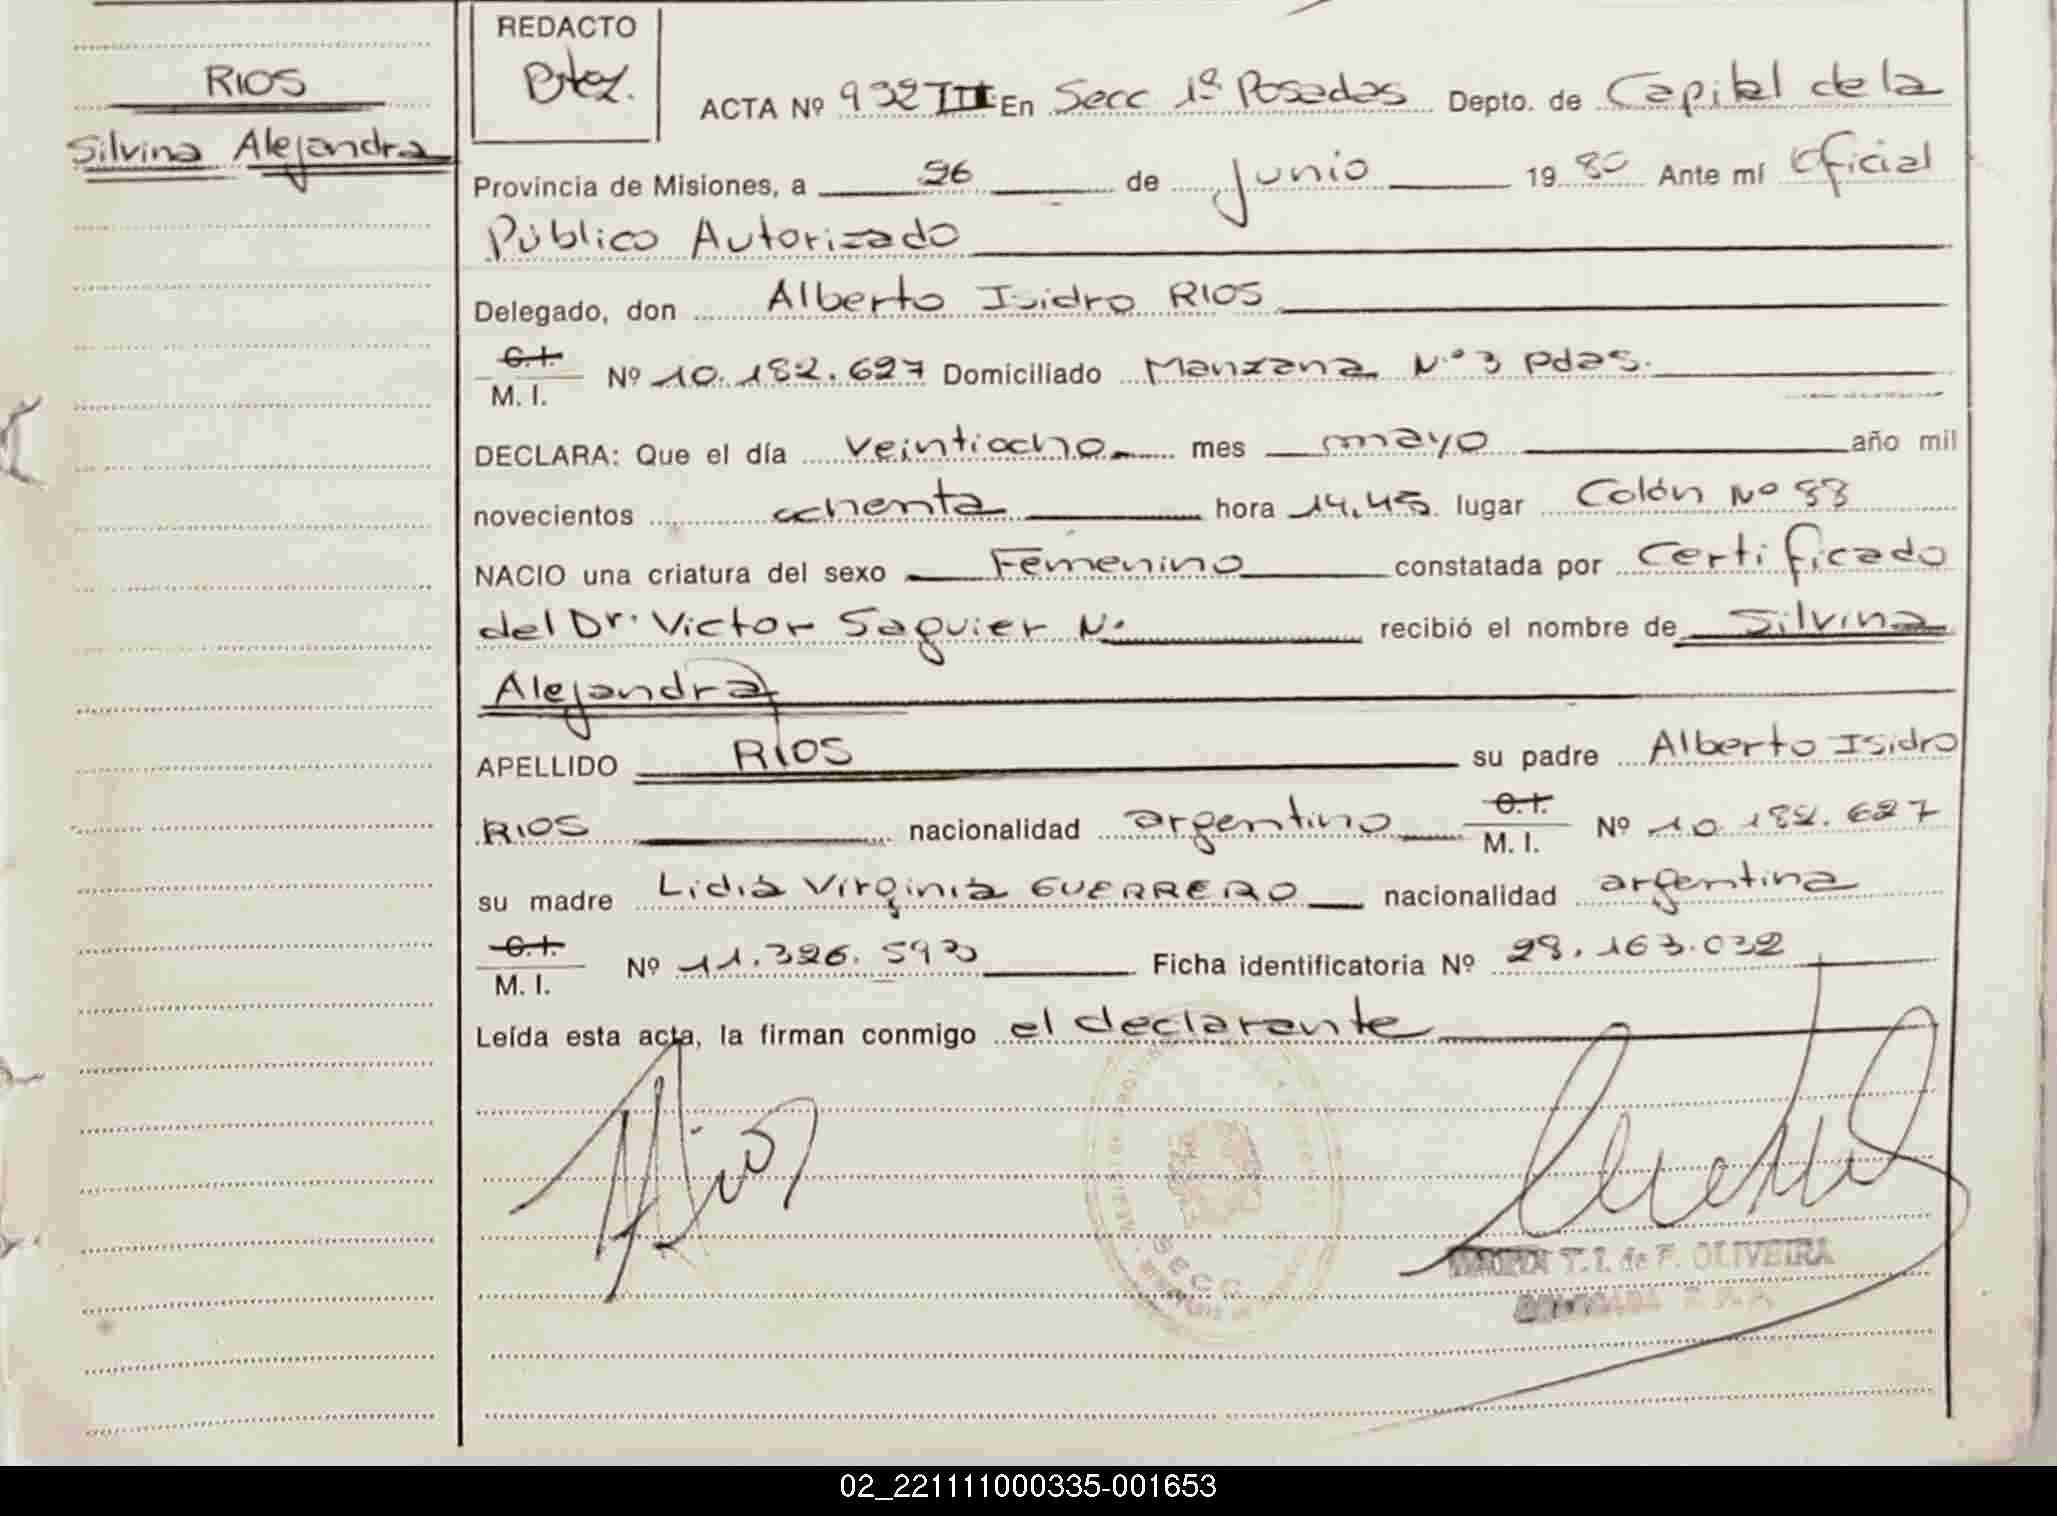 RIOS
Silvina Alejandra
REDACTO
ACTA Nº 932 III En Secc 1ª Posadas Depto. de Capital de la
Provincia de Misiones, a 26 de Junio 1980 Ante mí Oficial
Público Autorizado
Delegado, don Alberto Isidro RIOS
C.I.
M. I. Nº 10.182.627 Domiciliado Manzana Nº 3 Pdas.
DECLARA: Que el día veintiocho mes mayo año mil
novecientos ochenta hora 14,45 lugar Colón Nº 88
NACIO una criatura del sexo Femenino constatada por Certificado
del Dr. Victor Saguier N. recibió el nombre de Silvina
Alejandra
APELLIDO RIOS su padre Alberto Isidro
RIOS nacionalidad argentino C.I. M. I. Nº 10.182.627
su madre Lidia Virginia GUERRERO nacionalidad argentina
C.I.
M. I. Nº 11.326.593 Ficha identificatoria Nº 28.163.032
Leída esta acta, la firman conmigo el declarante
SECC
T. I. de F. OLIVEIRA
02_221111000335-001653